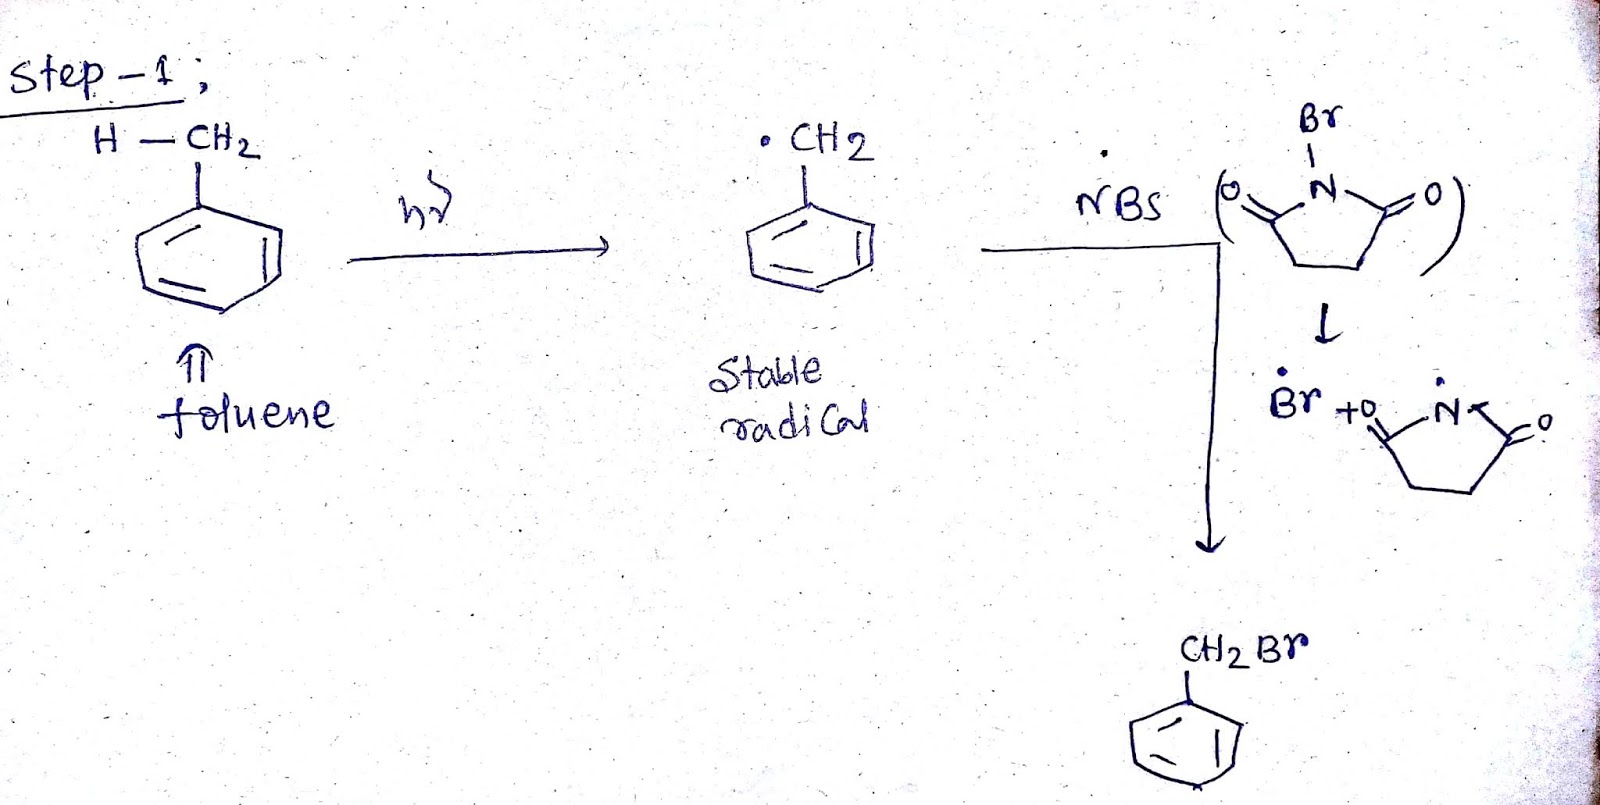 Step-1;
H - CH2
hν
• CH2
NBS
Br
O
N
O
Br + O
N
O
toluene
Stable
radical
CH2Br